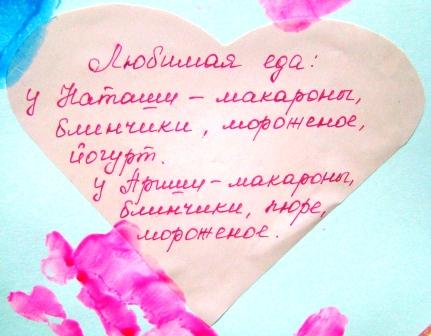 Любимая еда:
у Наташи - макароны,
блинчики, мороженое,
йогурт.
у Ариши - макароны,
блинчики, пюре,
мороженое.